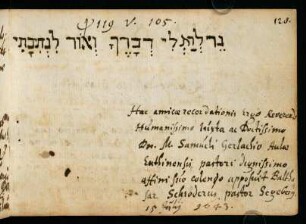 ψ 119 v. 105.
128.
נר לרגלי דברך ואור לנתיבתי
Hac amicæ recordationis ergo Reverendo
Humanissimo juxta ac Doctissimo
Dn. M. Samueli Gerlachio
pastori dignissimo
affini suo colendo apposuit Baltha
sar Schröderus, pastor Segeberg
15 1643.